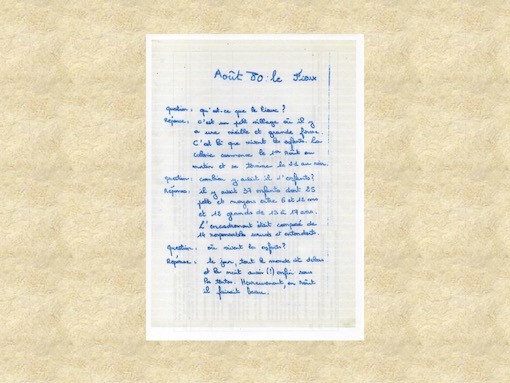 Août 80 : le Fioux
question : qu'est-ce que le Fioux ?
Réponse : c'est un petit village où il y
a une vieille et grande ferme.
C'est là que vivent les enfants. La
colonie commence le 1er Août au
matin et se termine le 22 au soir.
question : combien y avait il d'enfants?
Réponse : il y avait 37 enfants dont 25
petits et moyens entre 6 et 12 ans
et 12 grands de 13 à 17 ans.
L'encadrement était composé de
14 responsables sourds et entendants.
Question : où vivent les enfants?
Réponse : le jour, tout le monde est dehors
et la nuit aussi (!) enfin sous
les tentes. Heureusement, en Août
il faisait beau.